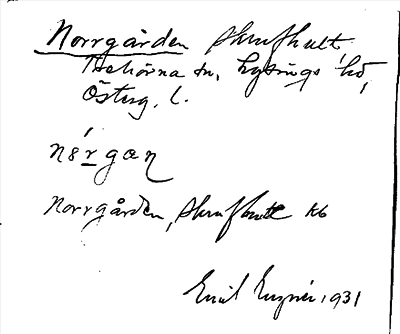 Norrgården Skrufhult,
Trehörna sn, Lysings hd,
Österg. l.
nórgan
Norrgården, Skrufhult kb
Emil 1931